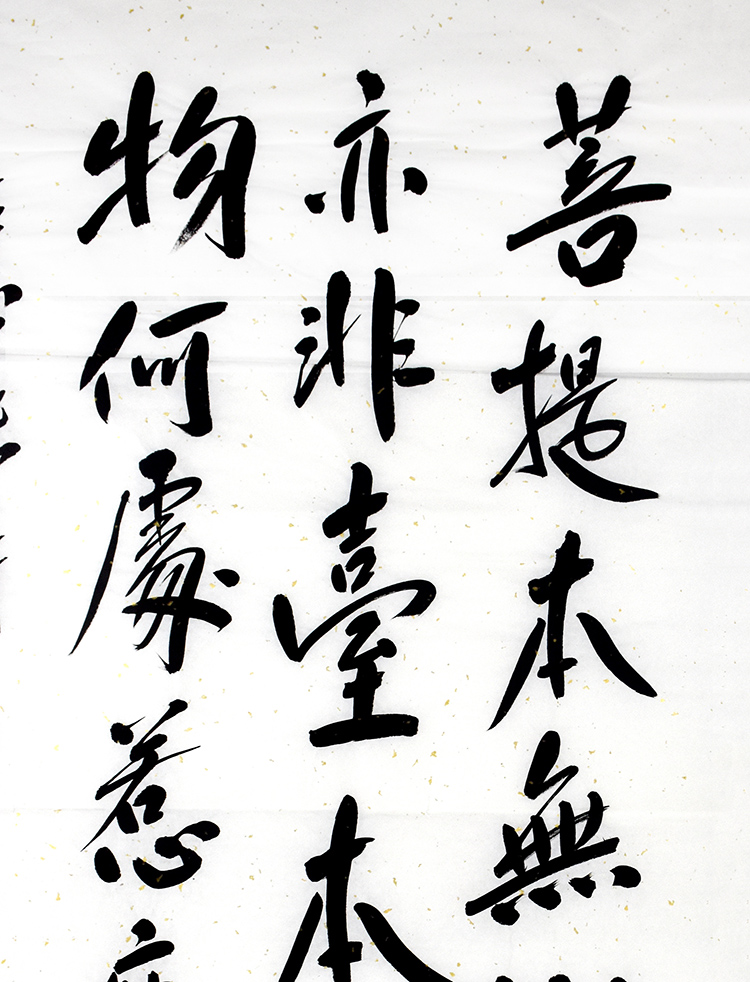 菩提本無
亦非臺本
物何處惹